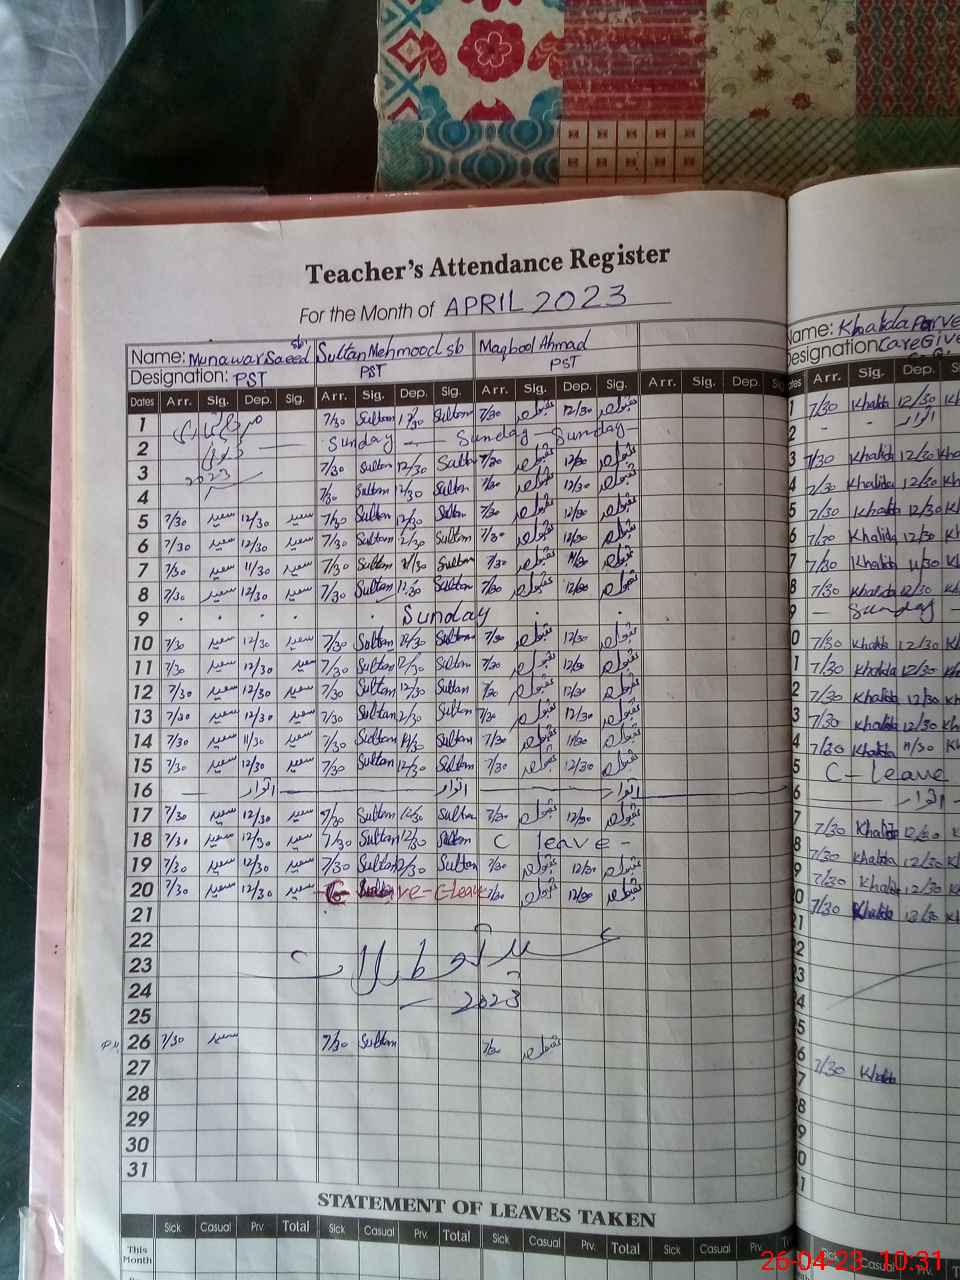 Teacher's Attendance Register
For the Month of APRIL 2023
Name: Munawar Saeed sb Sultan Mehmood sb Maqbool Ahmad
Designation: PST PST PST
Dates Arr. Sig. Dep. Sig. Arr. Sig. Dep. Sig. Arr. Sig. Dep. Sig. Arr. Sig. Dep. Sig
1 7/30 Sultan 12/30 Sultan 7/30 مقبول احمد 12/30 مقبول احمد
2 Sunday Sunday Sunday
3 2023 7/30 Sultan 12/30 Sultan 7/30 مقبول احمد 12/30 مقبول احمد
4 7/30 Sultan 12/30 Sultan 7/30 مقبول احمد 12/30 مقبول احمد
5 7/30 سعید 12/30 سعید 7/30 Sultan 12/30 Sultan 7/30 مقبول احمد 12/30 مقبول احمد
6 7/30 سعید 12/30 سعید 7/30 Sultan 12/30 Sultan 7/30 مقبول احمد 12/30 مقبول احمد
7 7/30 سعید 11/30 سعید 7/30 Sultan 11/30 Sultan 7/30 مقبول احمد 11/30 مقبول احمد
8 7/30 سعید 12/30 سعید 7/30 Sultan 12/30 Sultan 7/30 مقبول احمد 12/30 مقبول احمد
9 Sunday
10 7/30 سعید 12/30 سعید 7/30 Sultan 12/30 Sultan 7/30 مقبول احمد 12/30 مقبول احمد
11 7/30 سعید 12/30 سعید 7/30 Sultan 12/30 Sultan 7/30 مقبول احمد 12/30 مقبول احمد
12 7/30 سعید 12/30 سعید 7/30 Sultan 12/30 Sultan 7/30 مقبول احمد 12/30 مقبول احمد
13 7/30 سعید 12/30 سعید 7/30 Sultan 12/30 Sultan 7/30 مقبول احمد 12/30 مقبول احمد
14 7/30 سعید 11/30 سعید 7/30 Sultan 11/30 Sultan 7/30 مقبول احمد 11/30 مقبول احمد
15 7/30 سعید 12/30 سعید 7/30 Sultan 12/30 Sultan 7/30 مقبول احمد 12/30 مقبول احمد
16 اتوار اتوار اتوار
17 7/30 سعید 12/30 سعید 7/30 Sultan 12/30 Sultan 7/30 مقبول احمد 12/30 مقبول احمد
18 7/30 سعید 12/30 سعید 7/30 Sultan 12/30 Sultan C leave -
19 7/30 سعید 12/30 سعید 7/30 Sultan 12/30 Sultan 7/30 مقبول احمد 12/30 مقبول احمد
20 7/30 سعید 12/30 سعید C-leave 7/30 مقبول احمد 12/30 مقبول احمد
21
22
23 عید تعطیلات
24 2023
25
26 7/30 سعید 7/30 Sultan 7/30 مقبول احمد
27
28
29
30
31
STATEMENT OF LEAVES TAKEN
Sick Casual Prv. Total Sick Casual Prv. Total Sick Casual Prv. Total Sick Casual Prv.
This Month
Name: Khalida Parve
Designation Care Give
Arr. Sig. Dep.
7/30 Khalida 12/30
اتوار
7/30 Khalida 12/30 Kha
7/30 Khalida 12/30 Kh
7/30 Khalida 12/30 Kh
7/30 Khalida 12/30 Kh
7/30 Khalida 11/30 Kh
7/30 Khalida 12/30 Kh
Sunday
7/30 Khalida 12/30 Kh
7/30 Khalida 12/30 Kha
7/30 Khalida 12/30 Kh
7/30 Khalida 12/30 Kh
7/30 Khalida 11/30 Kh
C-Leave
اتوار
7/30 Khalida 12/30 Kh
7/30 Khalida 12/30 Kh
7/30 Khalida 12/30 Kh
7/30 Khalida 12/30 Kh
7/30 Khalida
26-04-23 10:31